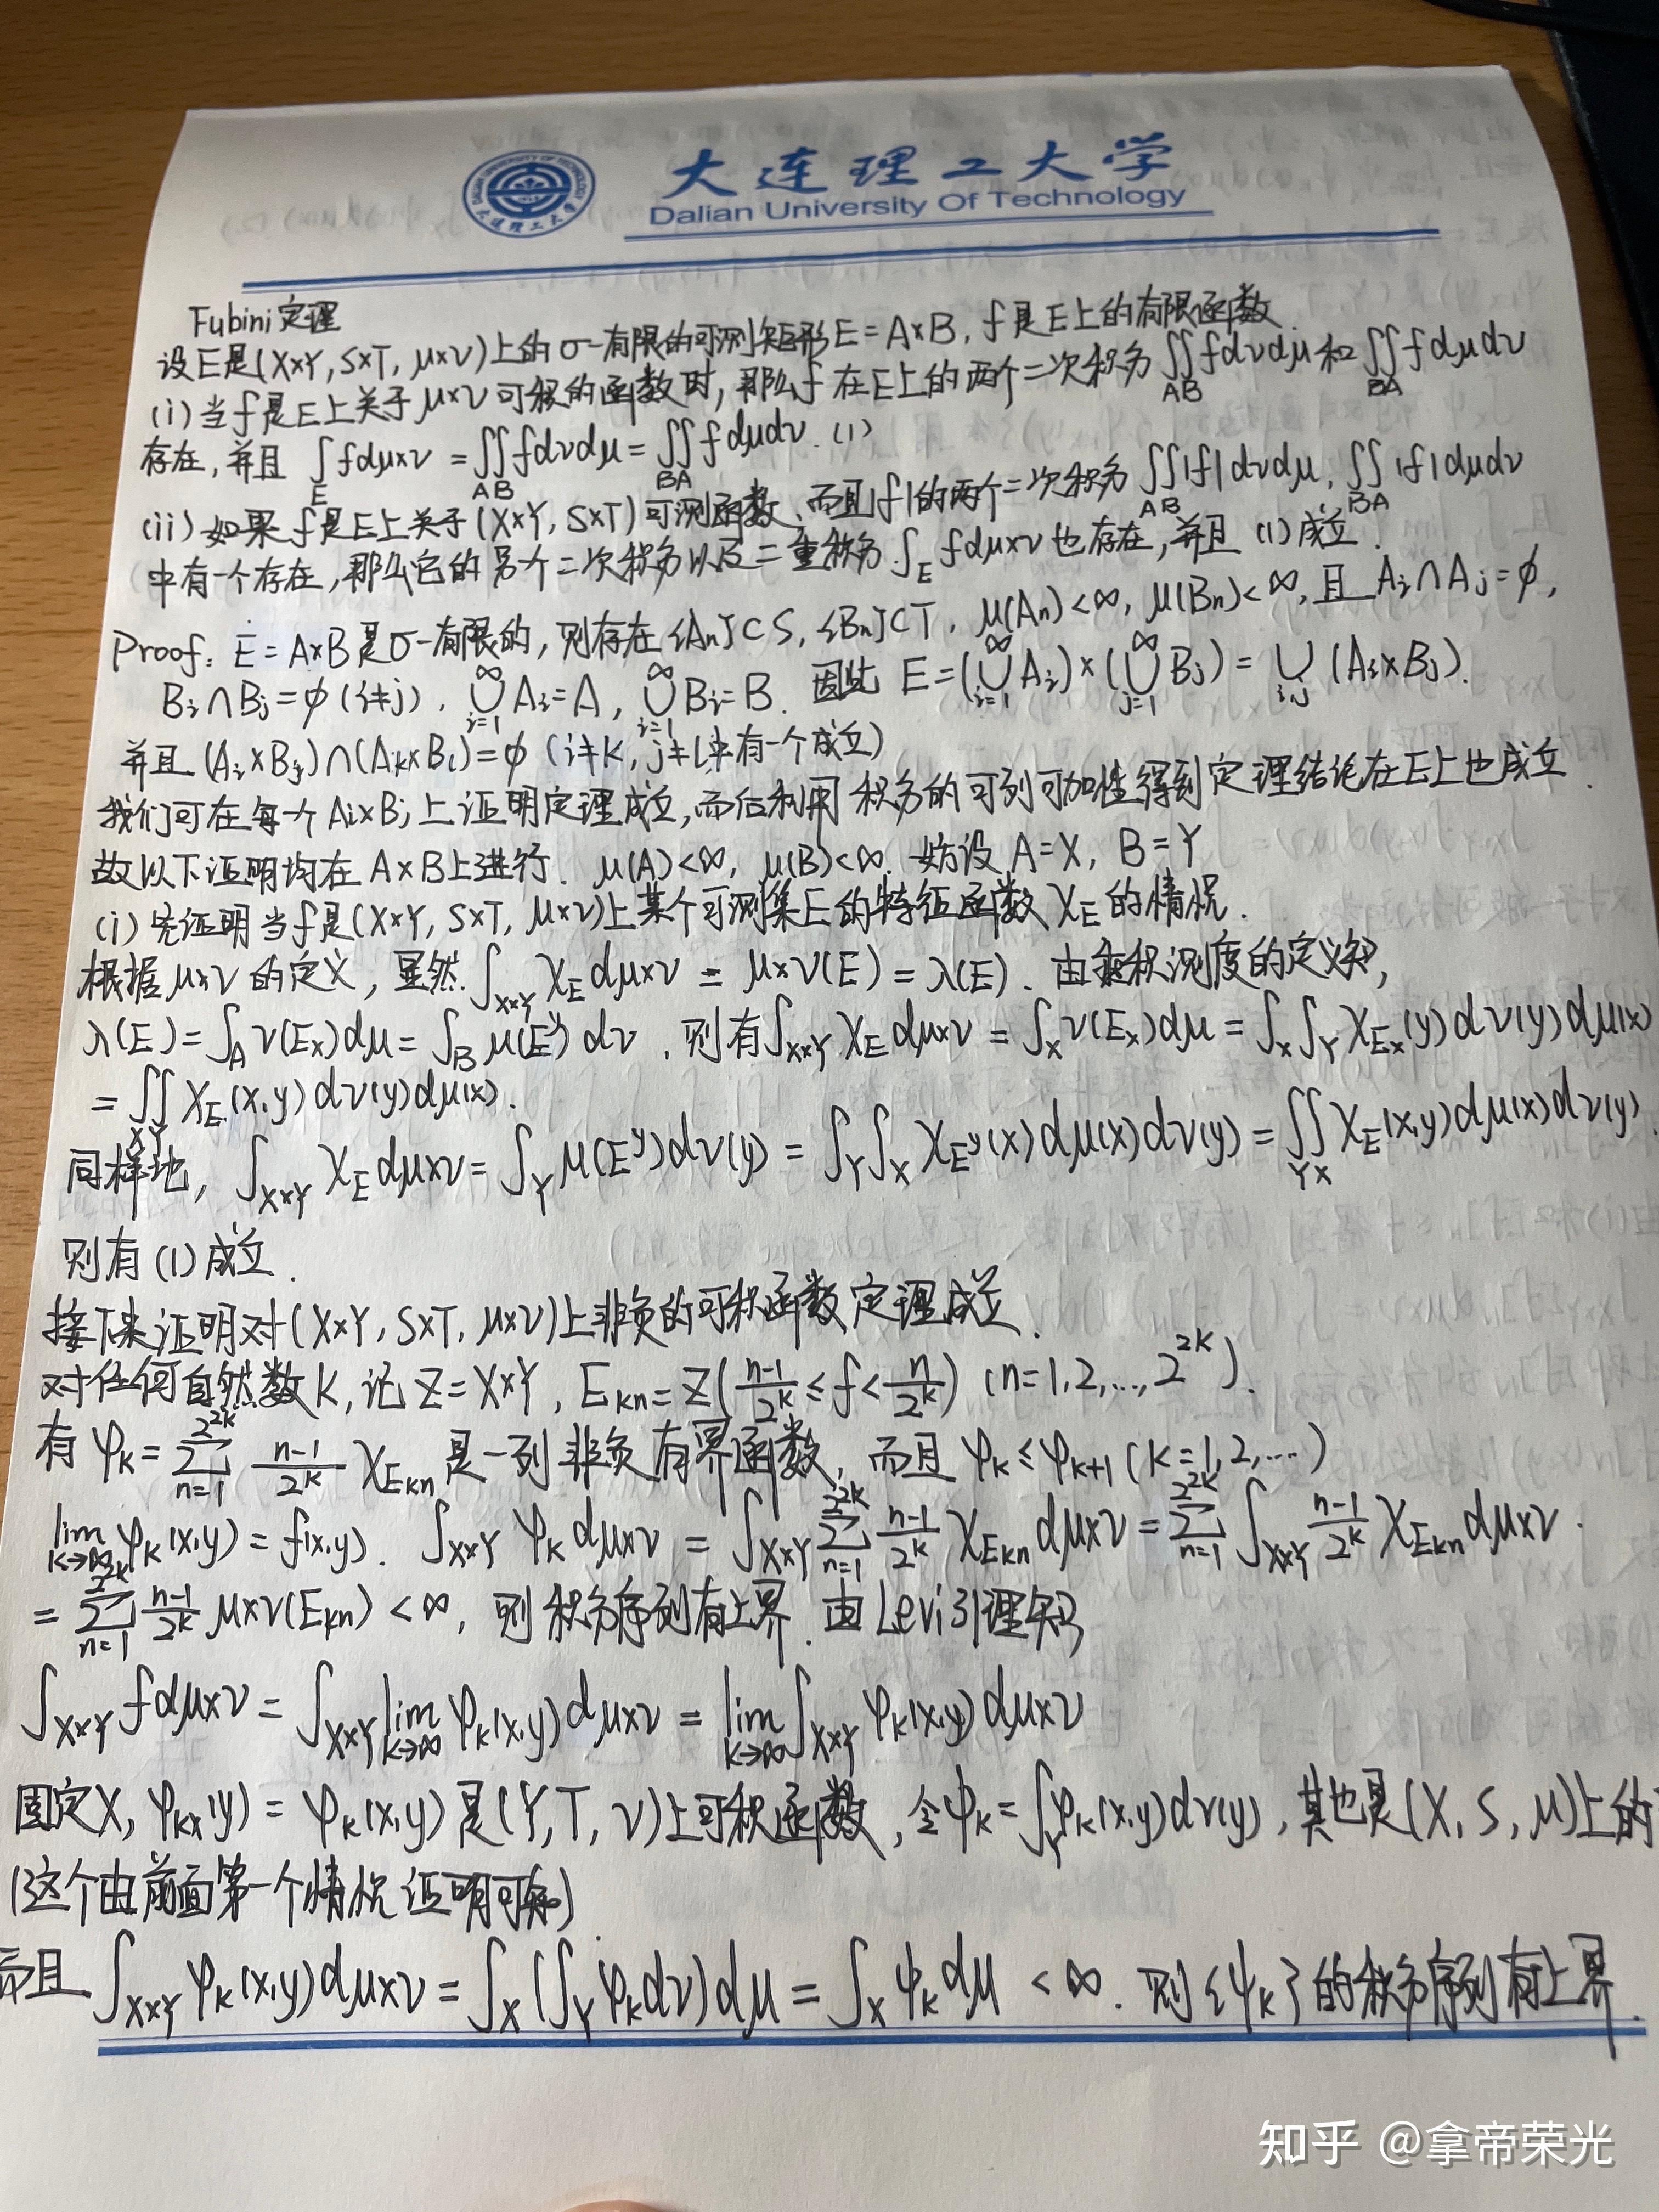 大连理工大学
Dalian University Of Technology
Fubini定理
设E是(X×Y, S×T, μ×ν)上的σ-有限的可测矩形E=A×B, f是E上的有限函数.
(i) 当f是E上关于μ×ν可积的函数时, 那么f在E上的两个二次积分 ∬_{AB} f dν dμ 和 ∬_{BA} f dμ dν
存在, 并且 ∫_E f dμ×ν = ∬_{AB} f dν dμ = ∬_{BA} f dμ dν. (1)
(ii) 如果f是E上关于(X×Y, S×T)可测函数, 而且|f|的两个二次积分 ∬_{AB} |f| dν dμ, ∬_{BA} |f| dμ dν
中有一个存在, 那么它的另个二次积分以及二重积分 ∫_E f dμ×ν 也存在, 并且 (1)成立.
Proof: E=A×B是σ-有限的, 则存在{An}⊂S, {Bn}⊂T, μ(An)<∞, μ(Bn)<∞, 且 Ai∩Aj=φ,
Bi∩Bj=φ (i≠j), ∪_{i=1}^∞ Ai=A, ∪_{i=1}^∞ Bi=B. 因此 E=(∪_{i=1}^∞ Ai)×(∪_{j=1}^∞ Bj) = ∪_{i,j} (Ai×Bj).
并且 (Ai×Bj)∩(Ak×Bl)=φ (i≠k, j≠l中有一个成立)
我们可在每个Ai×Bj上证明定理成立, 而后利用积分的可列可加性得到定理结论在E上也成立.
故以下证明均在A×B上进行. μ(A)<∞, μ(B)<∞. 妨设A=X, B=Y
(i) 先证明当f是(X×Y, S×T, μ×ν)上某个可测集E的特征函数χ_E的情况.
根据μ×ν的定义, 显然 ∫_{X×Y} χ_E dμ×ν = μ×ν(E) = λ(E). 由乘积测度的定义知,
λ(E)=∫_A ν(E_x)dμ=∫_B μ(E^y)dν, 则有∫_{X×Y} χ_E dμ×ν = ∫_X ν(E_x)dμ = ∫_X∫_Y χ_{E_x}(y)dν(y)dμ(x)
= ∬_{XY} χ_E(x,y)dν(y)dμ(x).
同样地, ∫_{X×Y} χ_E dμ×ν = ∫_Y μ(E^y)dν(y) = ∫_Y∫_X χ_{E^y}(x)dμ(x)dν(y) = ∬_{YX} χ_E(x,y)dμ(x)dν(y).
则有(1)成立.
接下来证明对(X×Y, S×T, μ×ν)上非负的可积函数定理成立.
对任何自然数k, 记Z=X×Y, E_{kn}=Z((n-1)/2^k ≤ f < n/2^k) (n=1,2,...,2^{2k}).
有 φ_k = Σ_{n=1}^{2^{2k}} (n-1)/2^k χ_{E_{kn}} 是一列非负有界函数, 而且 φ_k ≤ φ_{k+1} (k=1,2,...)
lim_{k→∞} φ_k(x,y)=f(x,y). ∫_{X×Y} φ_k dμ×ν = ∫_{X×Y} Σ_{n=1}^{2^{2k}} (n-1)/2^k χ_{E_{kn}} dμ×ν = Σ_{n=1}^{2^{2k}} ∫_{X×Y} (n-1)/2^k χ_{E_{kn}} dμ×ν.
= Σ_{n=1}^{2^{2k}} (n-1)/2^k μ×ν(E_{kn}) < ∞, 则积分序列有上界. 由Levi引理知
∫_{X×Y} f dμ×ν = ∫_{X×Y} lim_{k→∞} φ_k(x,y) dμ×ν = lim_{k→∞} ∫_{X×Y} φ_k(x,y) dμ×ν
固定X, φ_{kx}(y) = φ_k(x,y) 是(Y, T, ν)上可积函数, 令ψ_k=∫_Y φ_k(x,y)dν(y), 其也是(X, S, μ)上的
(这个由前面第一个情况证明可知)
而且 ∫_{X×Y} φ_k(x,y)dμ×ν = ∫_X (∫_Y φ_k dν) dμ = ∫_X ψ_k dμ < ∞. 则{ψ_k}的积分序列有上界.
知乎 @拿帝荣光